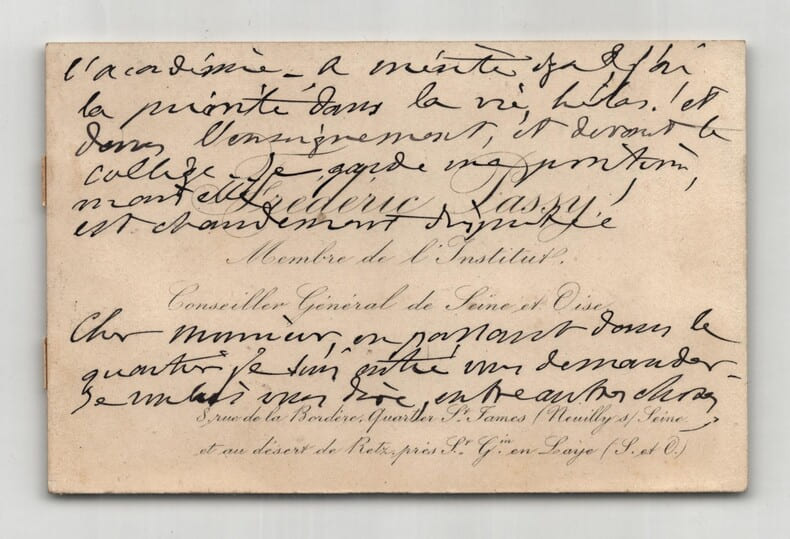 l'académie - a mérité
la priorité dans la vie, hélas! et
dans l'enseignement, et devant le
collège. Je garde ma position,
mais elle
Frédéric Passy
est chaudement disputée
Membre de l'Institut.
Conseiller Général de Seine et Oise
Cher monsieur, en passant dans le
quartier je suis entré vous demander -
Je voulais vous dire, entre autres choses,
8, rue de la Bordère. Quartier St. James (Neuilly s/ Seine
et au désert de Retz, près St. Gin en Laye (S. et O.)